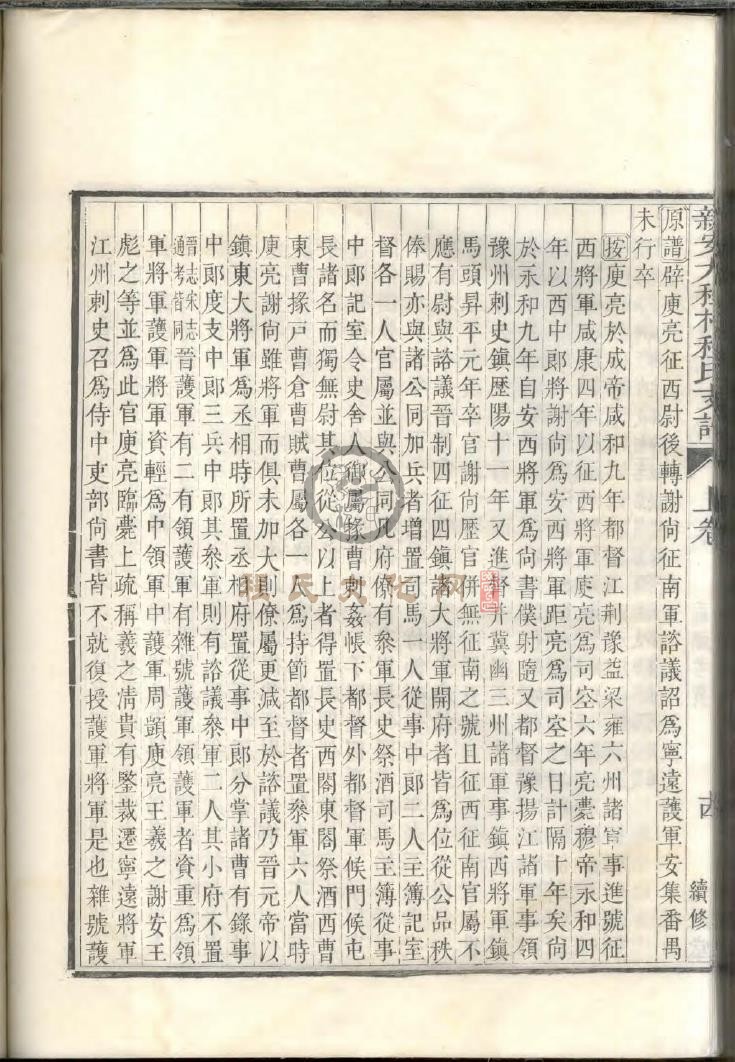 新安大程村程氏支譜
上卷
續修
原譜辟庾亮征西尉後轉謝尚征南軍諮議詔爲寧遠護軍安集番禺
未行卒
按庾亮於成帝咸和九年都督江荆豫益梁雍六州諸軍事進號征
西將軍咸康四年以征西將軍庾亮爲司空六年亮薨穆帝永和四
年以西中郎將謝尚爲安西將軍距亮爲司空之日計隔十年矣尚
於永和九年自安西將軍爲尚書僕射隨又都督豫揚江諸軍事領
豫州刺史鎮歷陽十一年又進督并冀幽三州諸軍事鎮西將軍鎮
馬頭昇平元年卒官謝尚歷官併無征南之號且征西征南官屬不
應有尉與諮議晉制四征四鎮諸大將軍開府者皆爲位從公品秩
俸賜亦與諸公同加兵者增置司馬一人從事中郎二人主簿記室
督各一人官屬並與公同凡府僚有叅軍長史祭酒司馬主簿從事
中郎記室令史舍人御屬掾曹刺姦帳下都督外都督軍候門候屯
長諸名而獨無尉其位從公以上者得置長史西閣東閣祭酒西曹
東曹掾戸曹倉曹賊曹屬各一人爲持節都督者置叅軍六人當時
庾亮謝尚雖將軍而俱未加大則僚屬更減至於諮議乃晉元帝以
鎮東大將軍爲丞相時所置丞相府置從事中郎分掌諸曹有錄事
中郎度支中郎三兵中郎其叅軍則有諮議叅軍二人其小府不置
晉志宋志通考皆同晉護軍有二有領護軍有雜號護軍領護軍者資重爲領
軍將軍護軍將軍資輕爲中領軍中護軍周顗庾亮王羲之謝安王
彪之等並爲此官庾亮臨薨上疏稱羲之清貴有鑒裁遷寧遠將軍
江州刺史召爲侍中吏部尚書皆不就復授護軍將軍是也雜號護